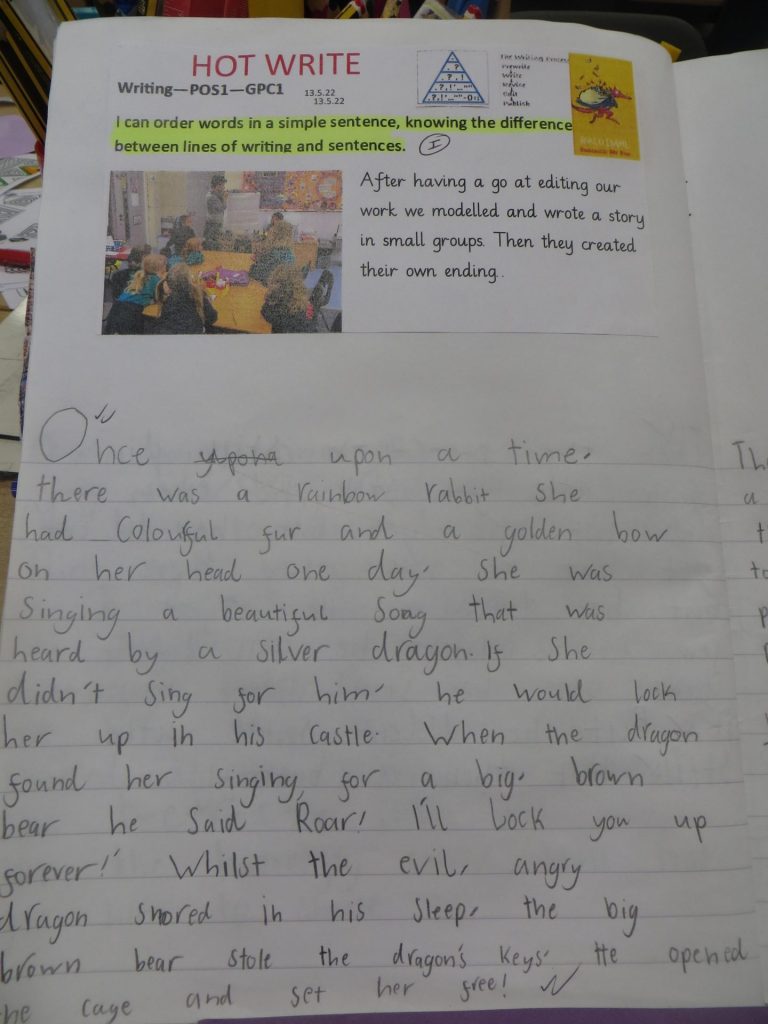 HOT WRITE
Writing—POS1—GPC1
13.5.22
13.5.22
I can order words in a simple sentence, knowing the difference
between lines of writing and sentences. I
The Writing Process
Prewrite
Write
Revise
Edit
Publish
ROALD DAHL
Fantastic Mr Fox
After having a go at editing our
work we modelled and wrote a story
in small groups. Then they created
their own ending..
Once upon a time,
there was a rainbow rabbit she
had Colourful fur and a golden bow
on her head one day, she was
Singing a beautiful Song that was
heard by a silver dragon. If She
didn't Sing for him, he would lock
her up in his castle. When the dragon
found her singing, for a big, brown
bear he Said "Roar! I'll Lock you up
forever!" Whilst the evil, angry
dragon snored in his sleep, the big
brown bear stole the dragon's keys. He opened
he cage and set her free!
Th
a
t
to
p